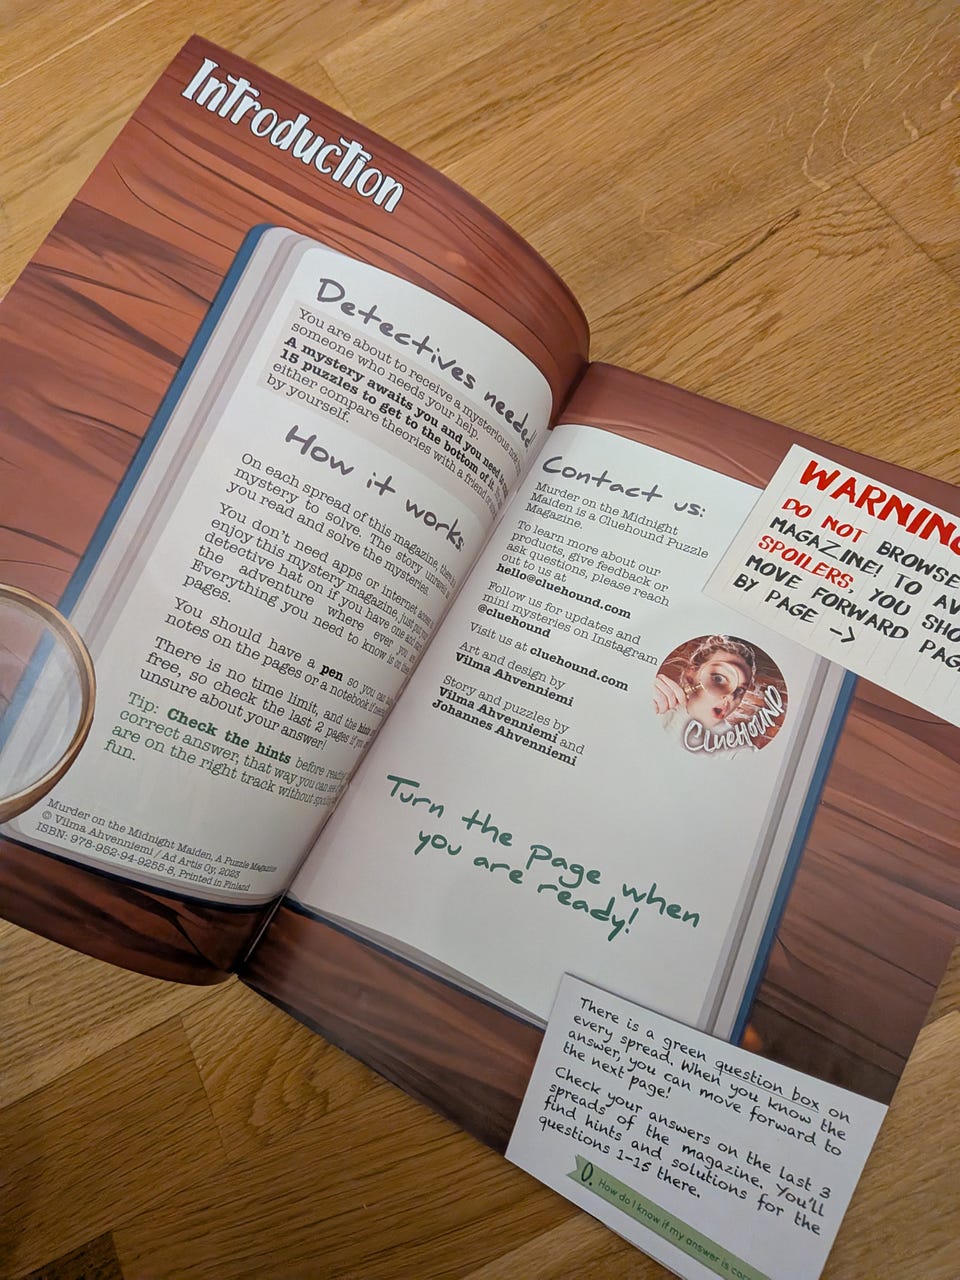 Introduction
Detectives needed!
You are about to receive a mysterious
someone who needs your help.
A mystery awaits you and you need to
15 puzzles to get to the bottom of it.
either compare theories with a friend
by yourself.
How it works:
On each spread of this magazine, there is
mystery to solve. The story unravels
you read and solve the mysteries.
You don't need apps or internet access
enjoy this mystery magazine, just put your
detective hat on if you have one and
the adventure where ever you are
Everything you need to know is on the
pages.
You should have a pen so you can
notes on the pages or a notebook if
There is no time limit, and the hints
free, so check the last 2 pages if you
unsure about your answer!
Tip: Check the hints before
correct answer, that way you can
are on the right track without
fun.
Murder on the Midnight Maiden, A Puzzle Magazine
© Vilma Ahvenniemi / Ad Artis Oy, 2023
ISBN: 978-952-94-9255-8, Printed in Finland
Contact us:
Murder on the Midnight
Maiden is a Cluehound Puzzle
Magazine.
To learn more about our
products, give feedback or
ask questions, please reach
out to us at
hello@cluehound.com
Follow us for updates and
mini mysteries on Instagram
@cluehound
Visit us at cluehound.com
Art and design by
Vilma Ahvenniemi
Story and puzzles by
Vilma Ahvenniemi and
Johannes Ahvenniemi
CLUEHOUND
Turn the page when
you are ready!
WARNING
DO NOT BROWSE
MAGAZINE! TO
SPOILERS, YOU
MOVE FORWARD
BY PAGE ->
There is a green question box on
every spread. When you know the
answer, you can move forward to
the next page!
Check your answers on the last 3
spreads of the magazine. You'll
find hints and solutions for the
questions 1-15 there.
0. How do I know if my answer is